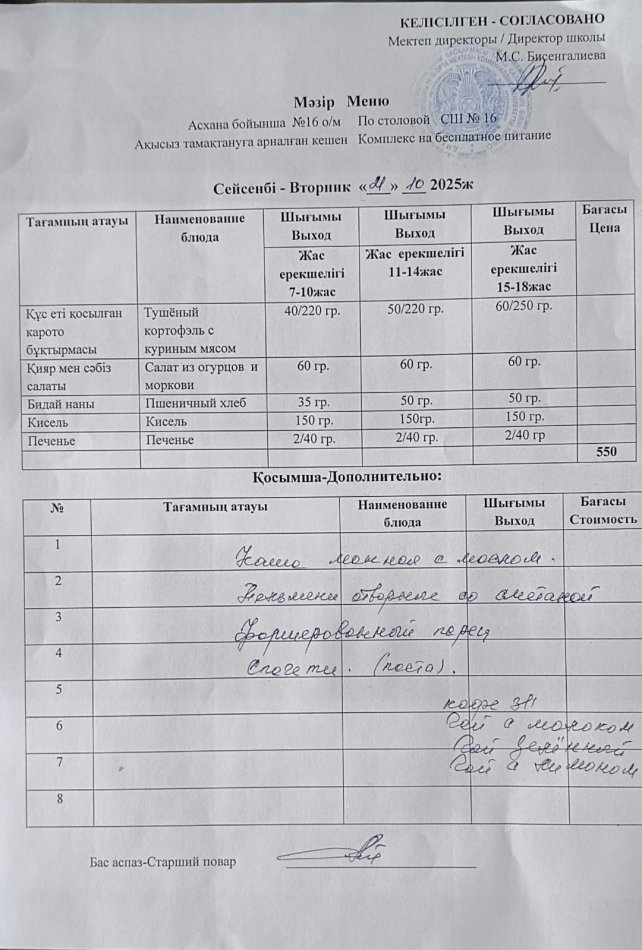 КЕЛІСІЛГЕН - СОГЛАСОВАНО
Мектеп директоры / Директор школы
М.С. Бисенгалиева
Мәзір Меню
Асхана бойынша №16 о/м По столовой СШ № 16
Ақысыз тамактануға арналған кешен Комплекс на бесплатное питание
Сейсенбі - Вторник «21» 10 2025ж
Тағамның атауы Наименованне блюда Шығымы Выход Шығымы Выход Шығымы Выход Бағасы Цена
Жас ерекшелігі 7-10жас Жас ерекшелігі 11-14жас Жас ерекшелігі 15-18жас
Құс еті қосылған карото бұқтырмасы Тушёный кортофэль с куриным мясом 40/220 гр. 50/220 гр. 60/250 гр.
Қияр мен сәбіз салаты Салат из огурцов и моркови 60 гр. 60 гр. 60 гр.
Бидай наны Пшеничный хлеб 35 гр. 50 гр. 50 гр.
Кисель Кисель 150 гр. 150гр. 150 гр.
Печенье Печенье 2/40 гр. 2/40 гр. 2/40 гр
550
Қосымша-Дополнительно:
№ Тағамның атауы Наименованне блюда Шығымы Выход Бағасы Стоимость
1 с
2 Пельмени отворные со сметаной
3
4 Спагети. (паста).
5 кофе 3в1
6 Чай с молоком
Чай зелённый
7 Чай с лимоном
8
Бас аспаз-Старший повар